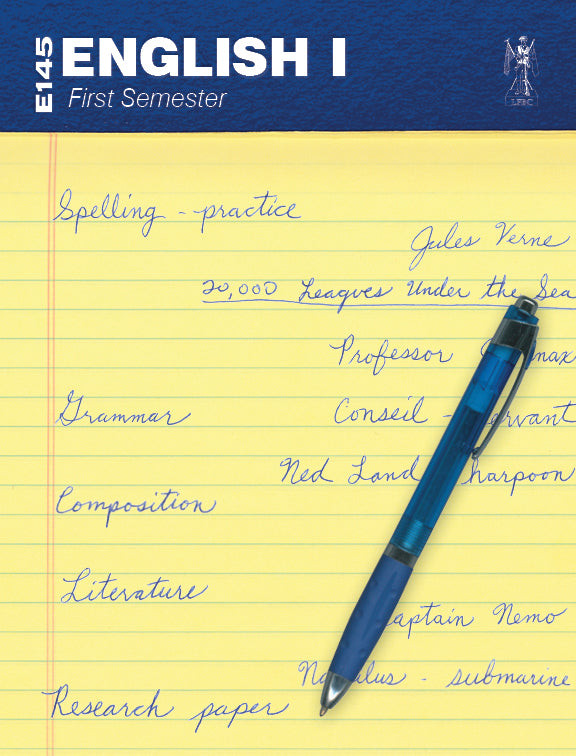 E145
ENGLISH I
First Semester
LFBC
Spelling - practice
Jules Verne
20,000 Leagues Under the Sea
Professor
Grammar
Conseil -
Ned Land
harpoon
Composition
Literature
Captain Nemo
- submarine
Research paper